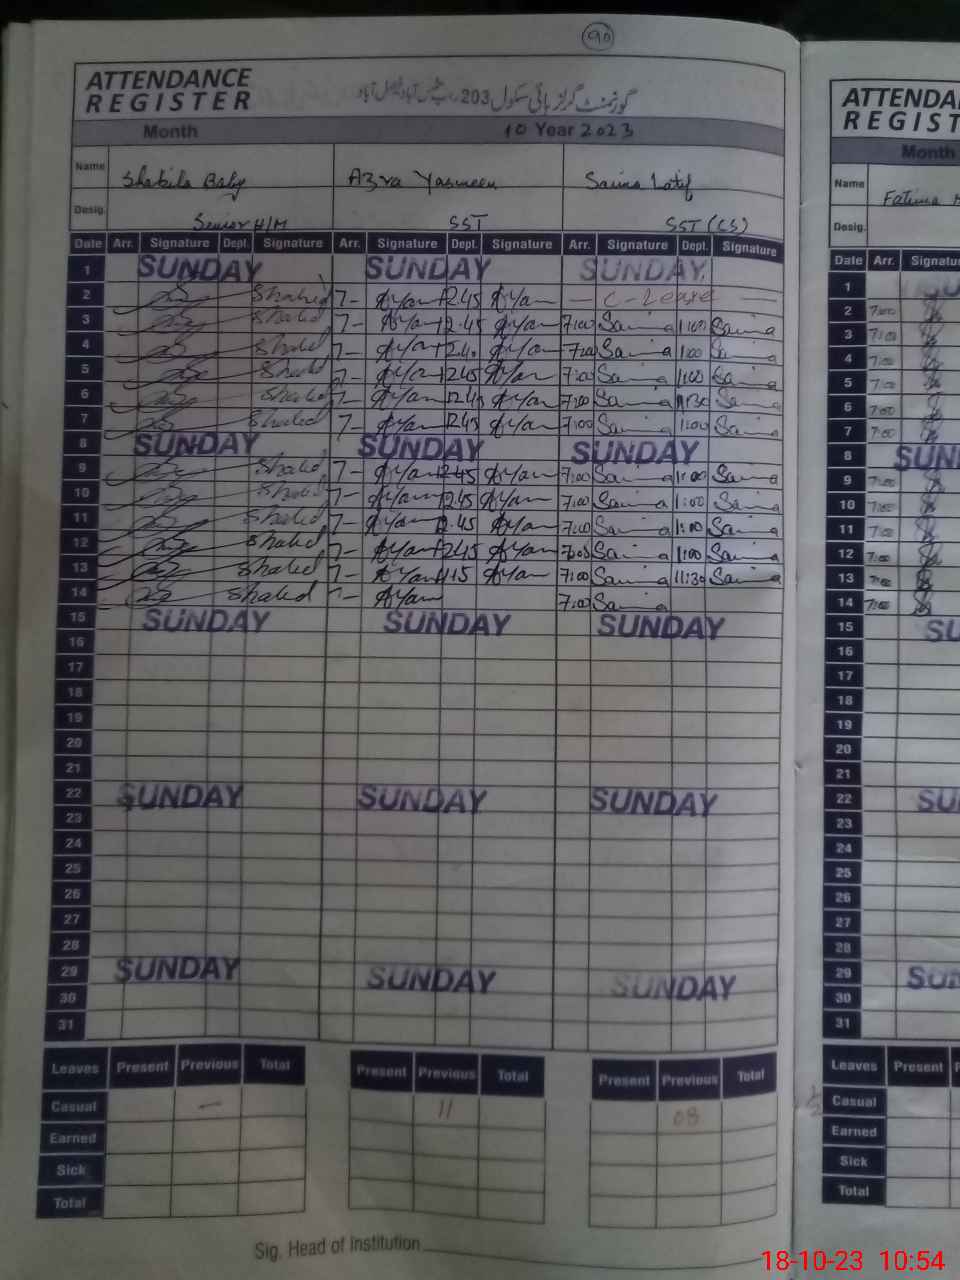 90
ATTENDANCE
REGISTER
گورنمنٹ گرلز ہائی سکول 203 ر ب
Month 10 Year 2023
Name Shakila Baby Azra Yasmeen Saima Latif
Desig. Senior H/M SST SST (CS)
Date Arr. Signature Dept. Signature Arr. Signature Dept. Signature Arr. Signature Dept. Signature
1 SUNDAY SUNDAY SUNDAY
2 Shahid 7- AYan 12.45 AYan — C-Leave —
3 Shahid 7- AYan 12.45 AYan 7:00 Saima 1:00 Saima
4 Shahid 7- AYan 12.40 AYan 7:00 Saima 1:00 Saima
5 Shahid 7- AYan 12.45 AYan 7:00 Saima 1:00 Saima
6 Shahid 7- AYan 12.45 AYan 7:00 Saima 11:30 Saima
7 Shahid 7- AYan 12.45 AYan 7:00 Saima 1:00 Saima
8 SUNDAY SUNDAY SUNDAY
9 Shahid 7- AYan 12.45 AYan 7:00 Saima 1:00 Saima
10 Shahid 7- AYan 12.45 AYan 7:00 Saima 1:00 Saima
11 Shahid 7- AYan 12.45 AYan 7:00 Saima 1:00 Saima
12 Shahid 7- AYan 12.45 AYan 7:05 Saima 1:00 Saima
13 Shahid 7- AYan 11.15 AYan 7:00 Saima 11:30 Saima
14 Shahid 7- AYan 7:00 Saima
15 SUNDAY SUNDAY SUNDAY
16
17
18
19
20
21
22 SUNDAY SUNDAY SUNDAY
23
24
25
26
27
28
29 SUNDAY SUNDAY SUNDAY
30
31
Leaves Present Previous Total Present Previous Total Present Previous Total
Casual — 11 08
Earned
Sick
Total
Sig. Head of Institution
ATTENDA
REGIST
Month
Name Fatima
Desig.
Date Arr. Signatu
1 SU
2 7:00
3 7:00
4 7:00
5 7:00
6 7:00
7 7:00
8 SUN
9 7:00
10 7:00
11 7:00
12 7:00
13 7:00
14 7:00
15 SU
16
17
18
19
20
21
22 SU
23
24
25
26
27
28
29 SUN
30
31
Leaves Present P
Casual
Earned
Sick
Total
18-10-23 10:54